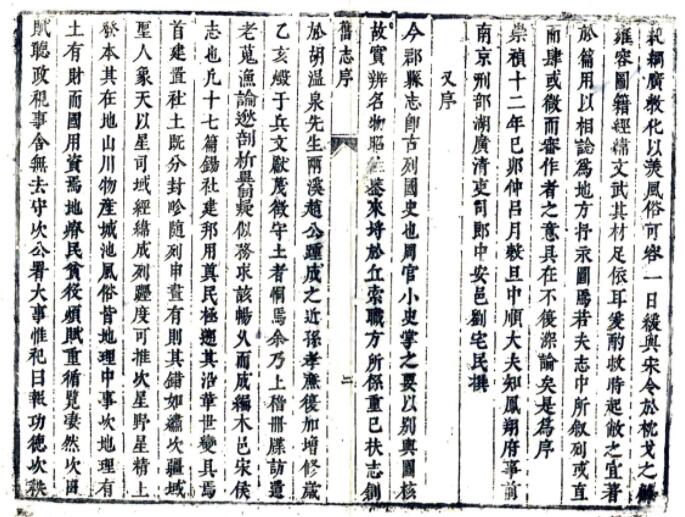 紀綱廣教化以美風俗可容一日緩與宋令於枕戈之
雍容圖籍經緯文武其材足依耳爰酌救時起敝之宜著
於篇用以相諗爲地方抒示圖焉若夫志中所叙列或直
而肆或微而審作者之意具在不復深論矣是爲序
崇禎十二年己卯仲呂月穀旦中順大夫知鳳翔府事前
南京刑部湖廣清吏司郎中安邑劉宅民撰
又序
今郡縣志卽古列國史也周官小史掌之要以別輿圖核
故實辨名物昭 來將於丘索職方所係重已扶志創
舊志序
二
於胡溫泉先生兩漢趙公踵成之近孫孝廉復加增修歲
乙亥燬于兵文獻蔑徵守土者恫焉余乃上稽冊牒訪遺
老蒐漁論逖剖析異同疑似務求該暢久而成編木邑宋侯
志也凡十七篇錫社建邦用奠民極遡其沿革世變具焉
首建置社土旣分封畛随列申畫有則其錯如繡次疆域
聖人象天以星司域經緯成列躔度可推次星野星精上
發本其在地山川物產城池風俗皆地理中事次地理有
土有財而國用資焉地瘠民貧役煩賦重循覽凄然次田
賦聽政視事舍無去守次公署大事惟祀日報功德次秩